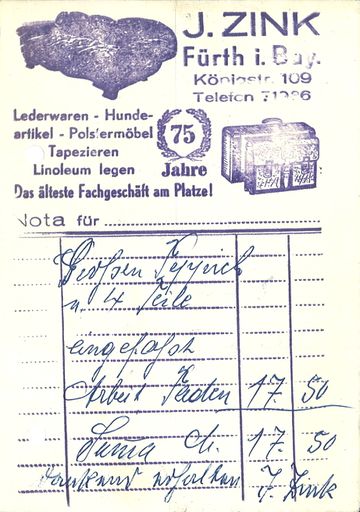 J. ZINK
Fürth i. Bay.
Königstr. 109
Telefon 71936
Lederwaren - Hunde-
artikel - Polstermöbel
Tapezieren
Linoleum legen
75
Jahre
Das älteste Fachgeschäft am Platze!
Nota für
Großen Teppich
u. 4 Teile
eingefasst
Arbeit Faden 17. 50
Suma 17. 50
dankend erhalten J. Zink